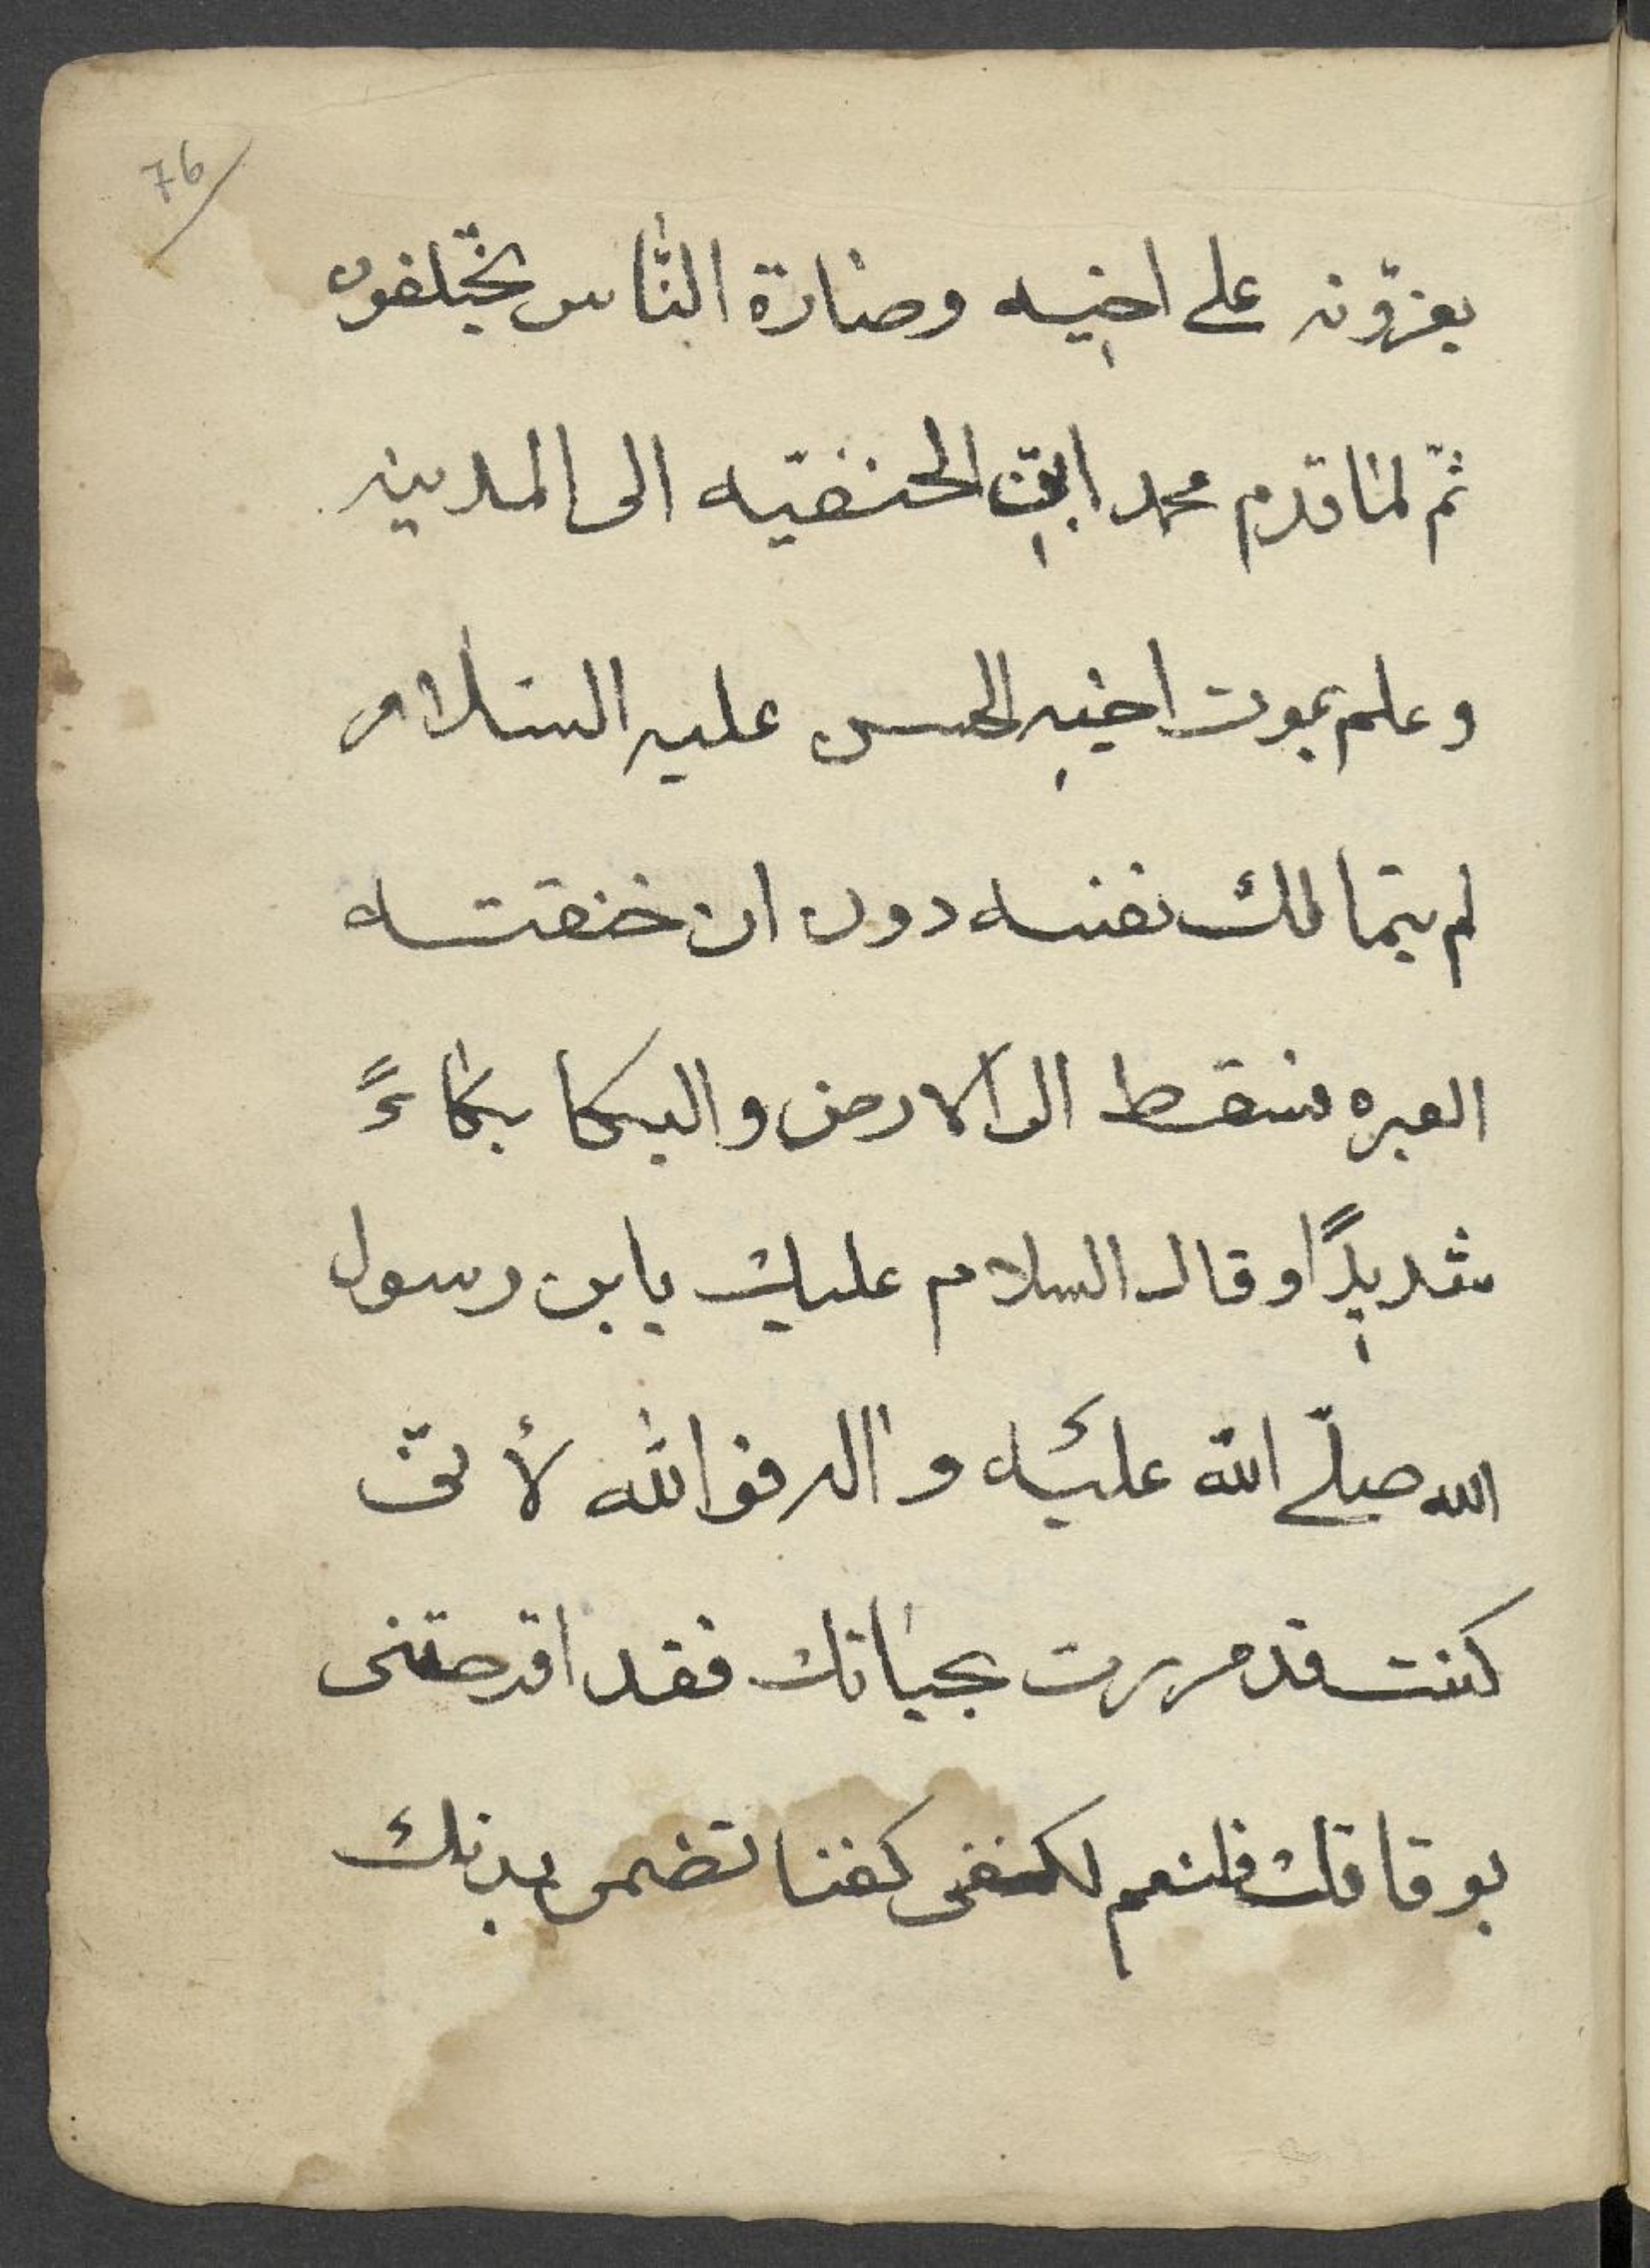 76
يعزّونه على اخيه وصارة النّاس يختلفون
ثمّ لما قدم محمد ابن الحنفيّه الى المدينه
وعلم بموت اخيه الحسن عليه السلام
لم يتمالك نفسه دون ان خنقته
العبره فسقط الى الارض والبكا بكاءً
شديدًا وقال السلام عليك يابن رسول
الله صلّى الله عليه واله فوالله لأنّى
كنت قد مررت بحياتك فقد اقرحتنى
بوفاتك فلنعم لكفنى كفنا تضمن بدنك